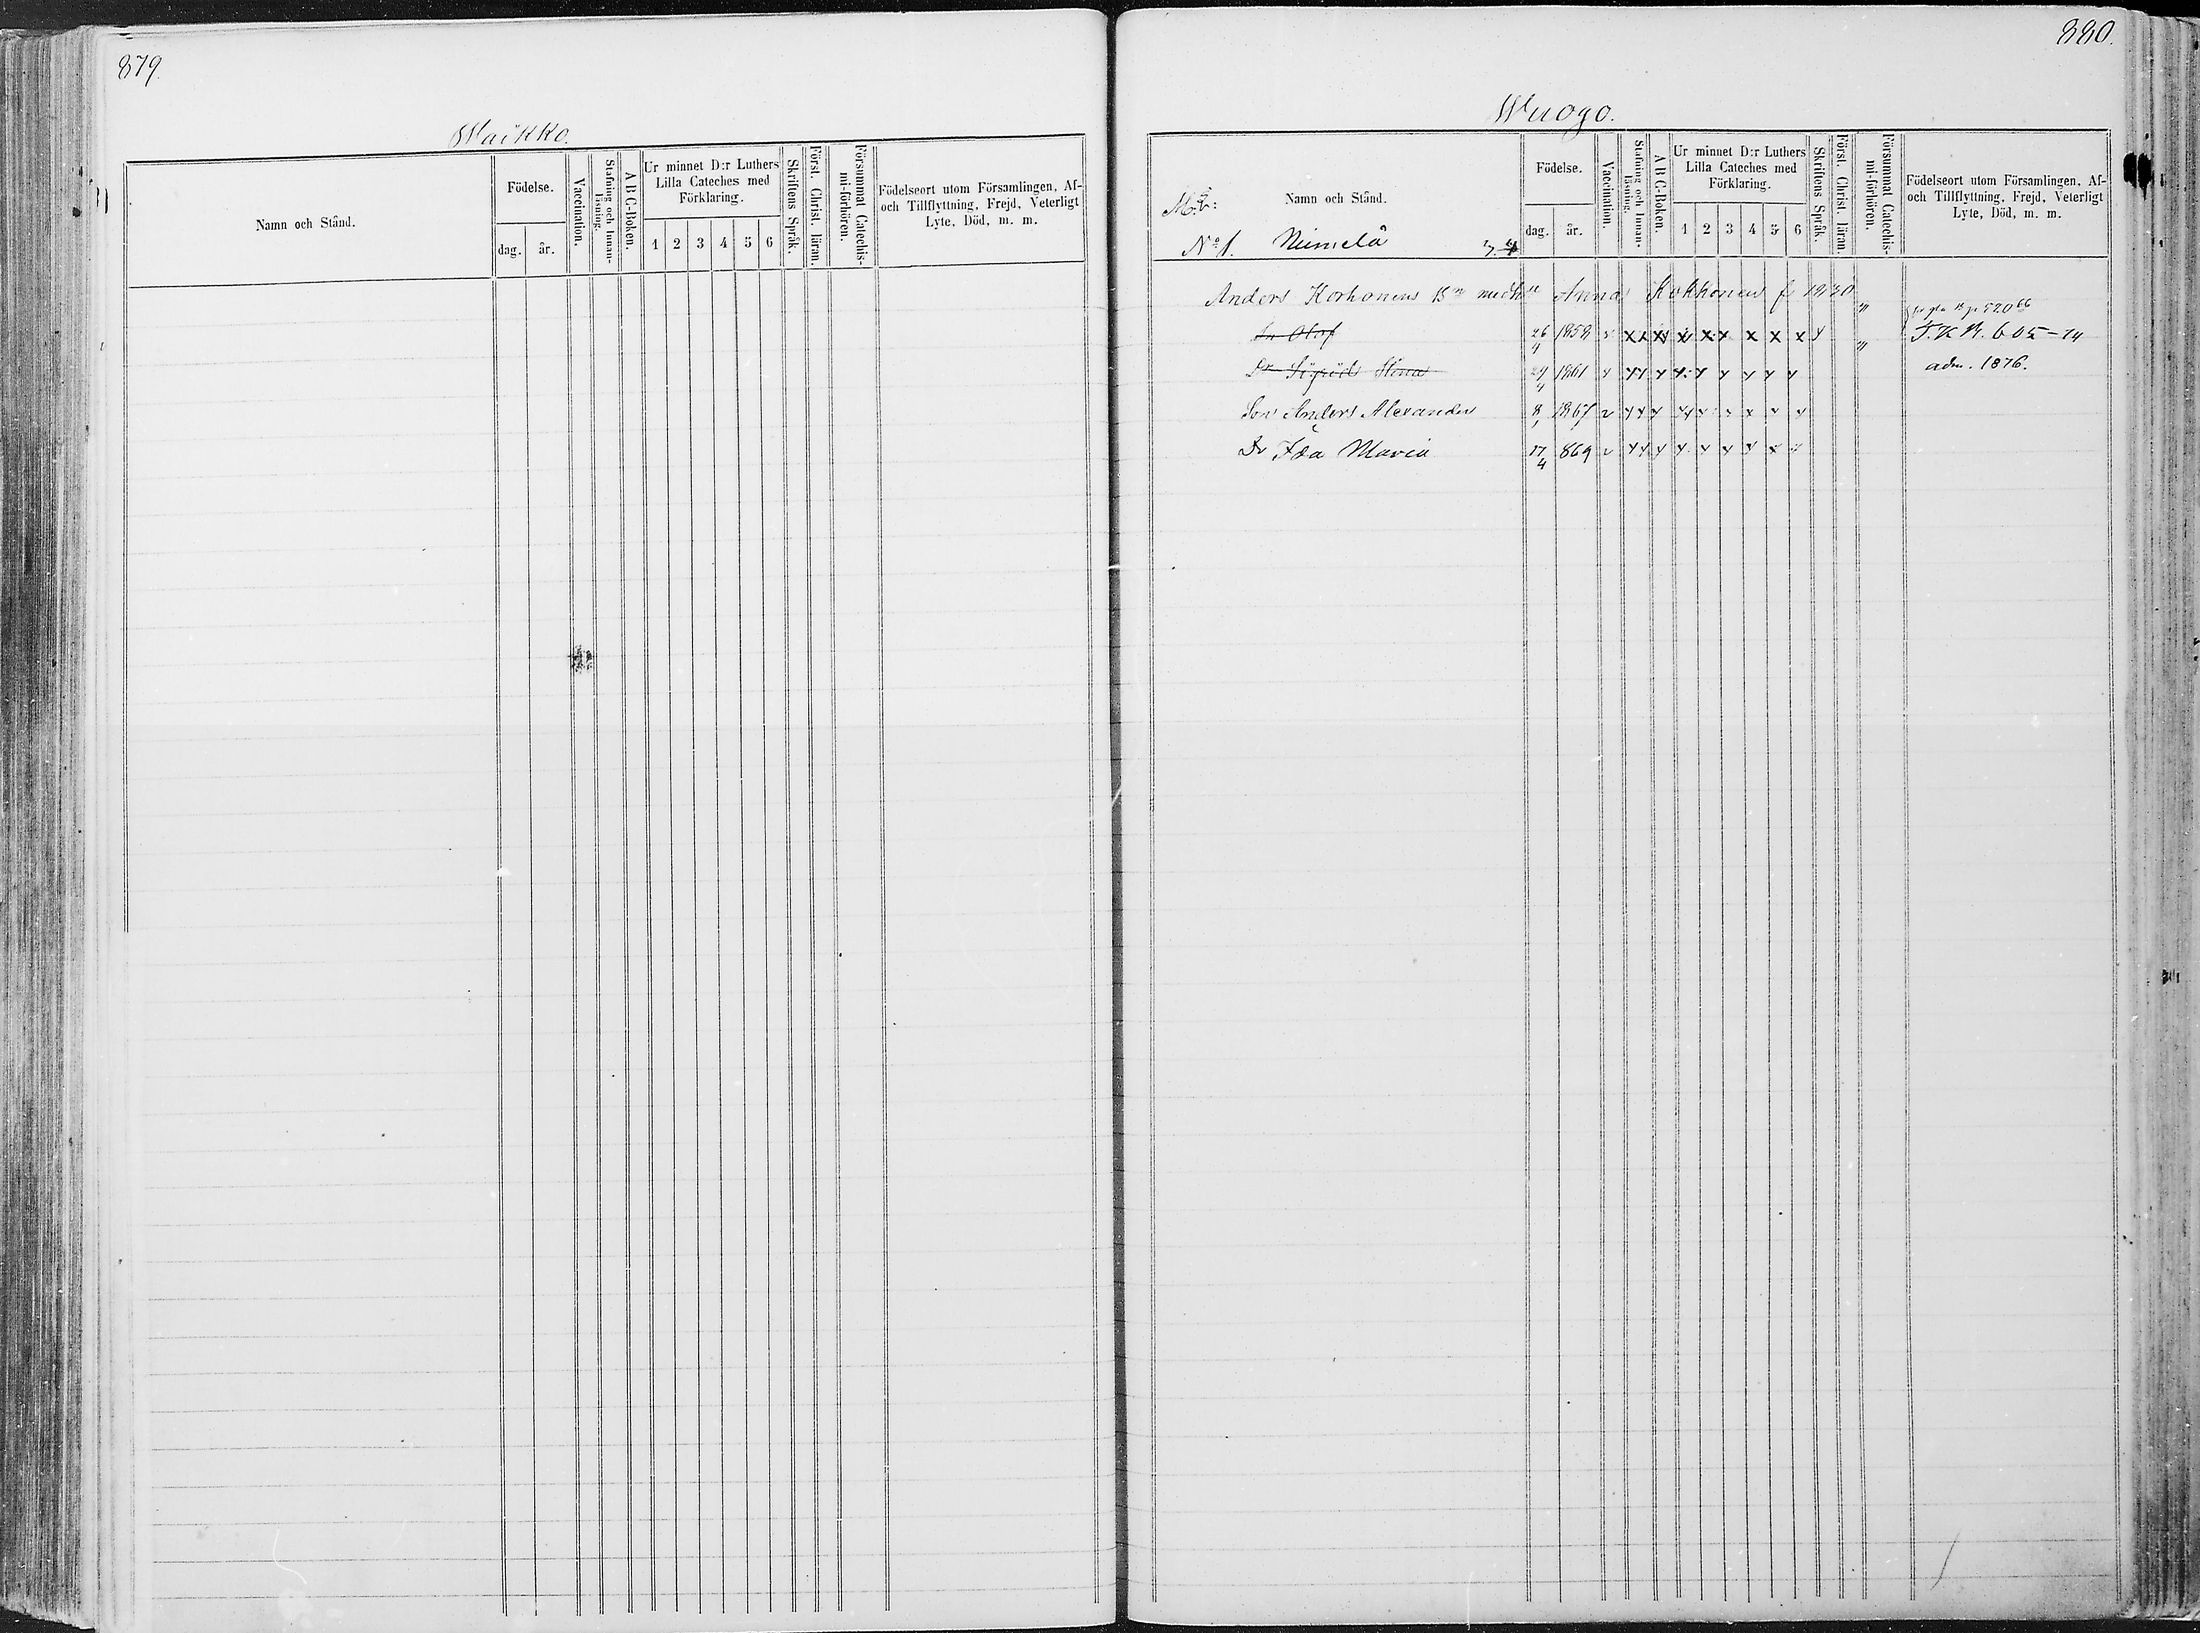 879.
Waikko.
Namn och Stånd.
Födelse.
dag.
år.
Vaccination.
Stafning och Innan-
läsning.
A B C-Boken.
Ur minnet D:r Luthers
Lilla Cateches med
Förklaring.
1 2 3 4 5 6
Skriftens Språk.
Först. Christ. läran.
Försummat Catechis-
mi-förhören.
Födelseort utom Församlingen, Af-
och Tillflyttning, Frejd, Veterligt
Lyte, Död, m. m.
880.
Wuogo.
Namn och Stånd.
Födelse.
dag.
år.
Vaccination.
Stafning och Innan-
läsning.
A B C-Boken.
Ur minnet D:r Luthers
Lilla Cateches med
Förklaring.
1 2 3 4 5 6
Skriftens Språk.
Först. Christ. läran
Försummat Catechis-
mi-förhören.
Födelseort utom Församlingen, Af-
och Tillflyttning, Frejd, Veterligt
Lyte, Död, m. m.
No 1. Niemelä
Anders Korhonens Bn med Anna Kokkonen f 1820
Sn Olof 26/4 1859 x x x x x x x x x x
Dr Sigrid Stina 1861
adm. 1876.
Son Anders Alexander 8/1 1867
Dr Ida Maria 17/4 869